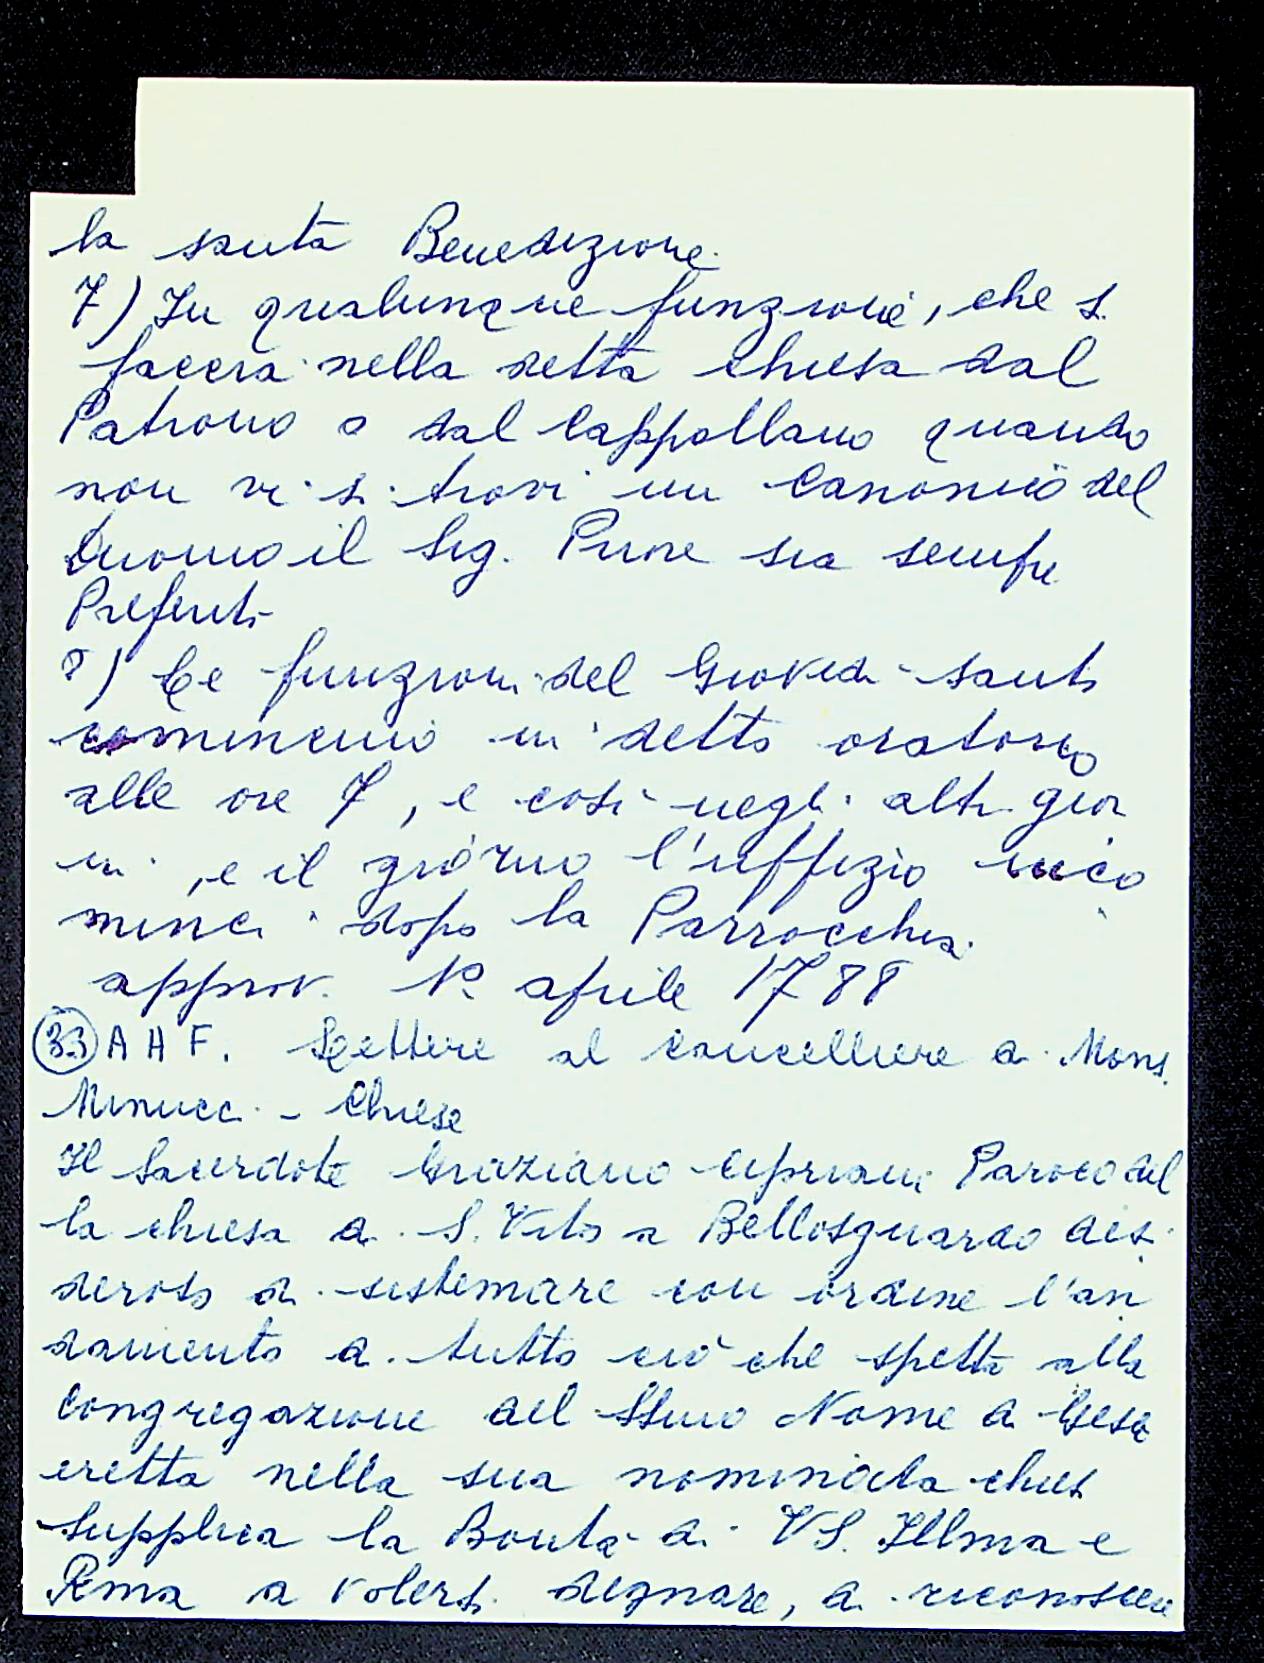 la santa Benedizione.
7) In qualunque funzione, che si
faccia nella detta chiesa dal
Patrono o dal Cappellano quando
non vi si trovi un Canonico del
Duomo il Sig. Priore sia sempre
Preferito
8) Le funzioni del Giovedi santo
comincino in detto oratorio
alle ore 7, e così negli altri gior
ni, e il giorno l'uffizio inco
minci dopo la Parrocchia.
approv. 1º aprile 1788
(33) A H F. Lettere al cancelliere di Mons.
Minucci - Chiese
Il Sacerdote Graziano Cipriani Paroco del
la chiesa di S. Vito a Bellosguardo desi
deroso di sistemare con ordine l'an
damento di tutto ciò che spetta alla
Congregazione del SSmo Nome di Gesù
eretta nella sua nominata chiesa
supplica la Bontà di VS. Illma e
Rma a volersi degnare, di riconoscere